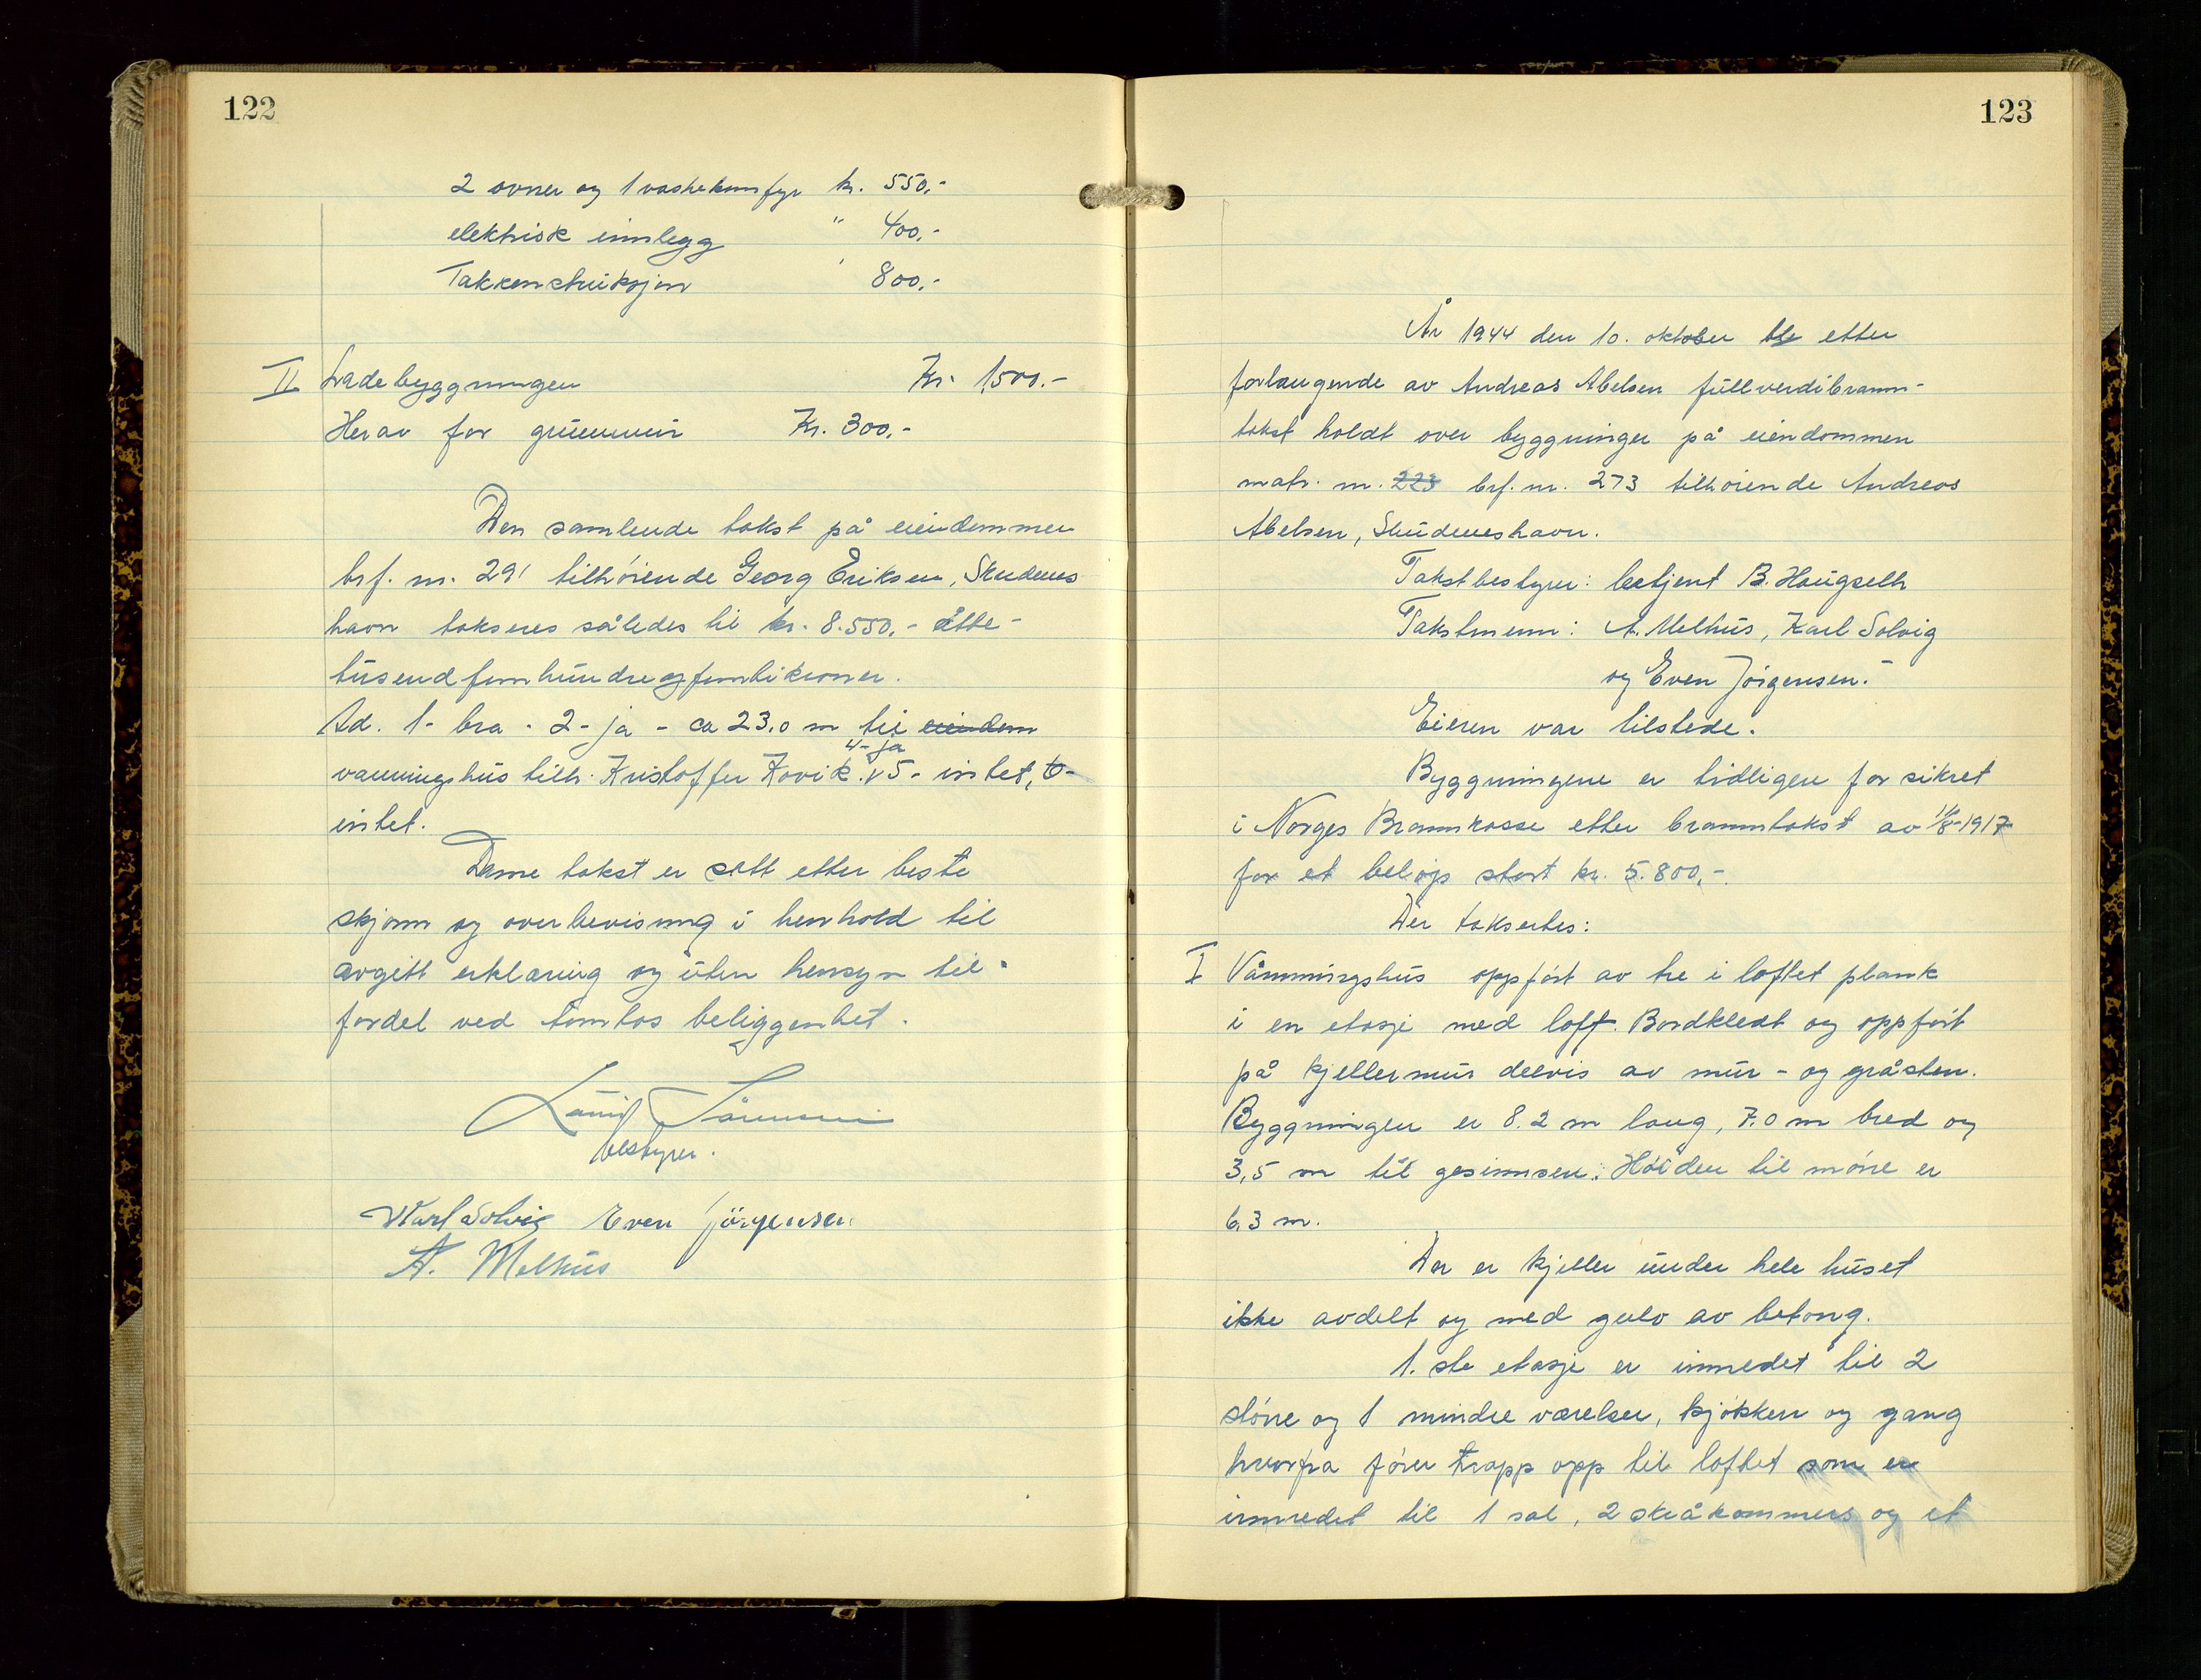 122
2 ovner og 1 vaskekomfyr kr. 550.-
elektrisk innlegg " 400.-
Takkonstruksjon ' 800.-
II Ladebyggningen Kr. 1,500.-
Herav for grunnmur Kr. 300.-
Den samlende takst på eiendommen
brf. nr. 291 tilhörende Georg Eriksen, Skudenes
havn takseres således til kr. 8.550.- åtte-
tusendfemhundreogfemtikroner.
Ad. 1- bra - 2- ja - ca 23.0 m til eiendom
4- ja
vånningshus tilh. Kristoffer Kovik. v 5- intet, 6-
intet.
Denne takst er satt etter beste
skjønn og overbevisning i henhold til
avgitt erklæring og uten hensyn til
fordel ved tomtas beliggenhet.
bestyrer.
Karl Solvig Even Jörgensen
A. Melhus
123
År 1944 den 10. oktober ble etter
forlangende av Andreas Abelsen fullverdibrann-
takst holdt over byggninger på eiendommen
matr. nr. 223 brf. nr. 273 tilhörende Andreas
Abelsen, Skudeneshavn.
Takstbestyrer: betjent B. Haugseth
Takstmenn: A. Melhus, Karl Solvig
og Even Jörgensen.-
Eieren var tilstede.
Byggningene er tidligere forsikret
i Norges Brannkasse etter branntakst av 11/8-1917
for et belöp stort kr. 5.800,-.
Der taksertes:
I Vånningshus oppfört av tre i loftet plank
i en etasje med loft. Bordkledt og oppfört
på kjellermur delvis av mur- og gråsten.
Byggningen er 8.2 m lang, 7.0 m bred og
3,5 m til gesimsen. Höiden til möne er
6,3 m.
Der er kjeller under hele huset
ikke avdelt og med gulv av betong.
1. ste etasje er innredet til 2
större og 1 mindre værelser, kjökken og gang
hvorfra förer trapp opp til loftet som er
innredet til 1 sal, 2 skråkammers og et